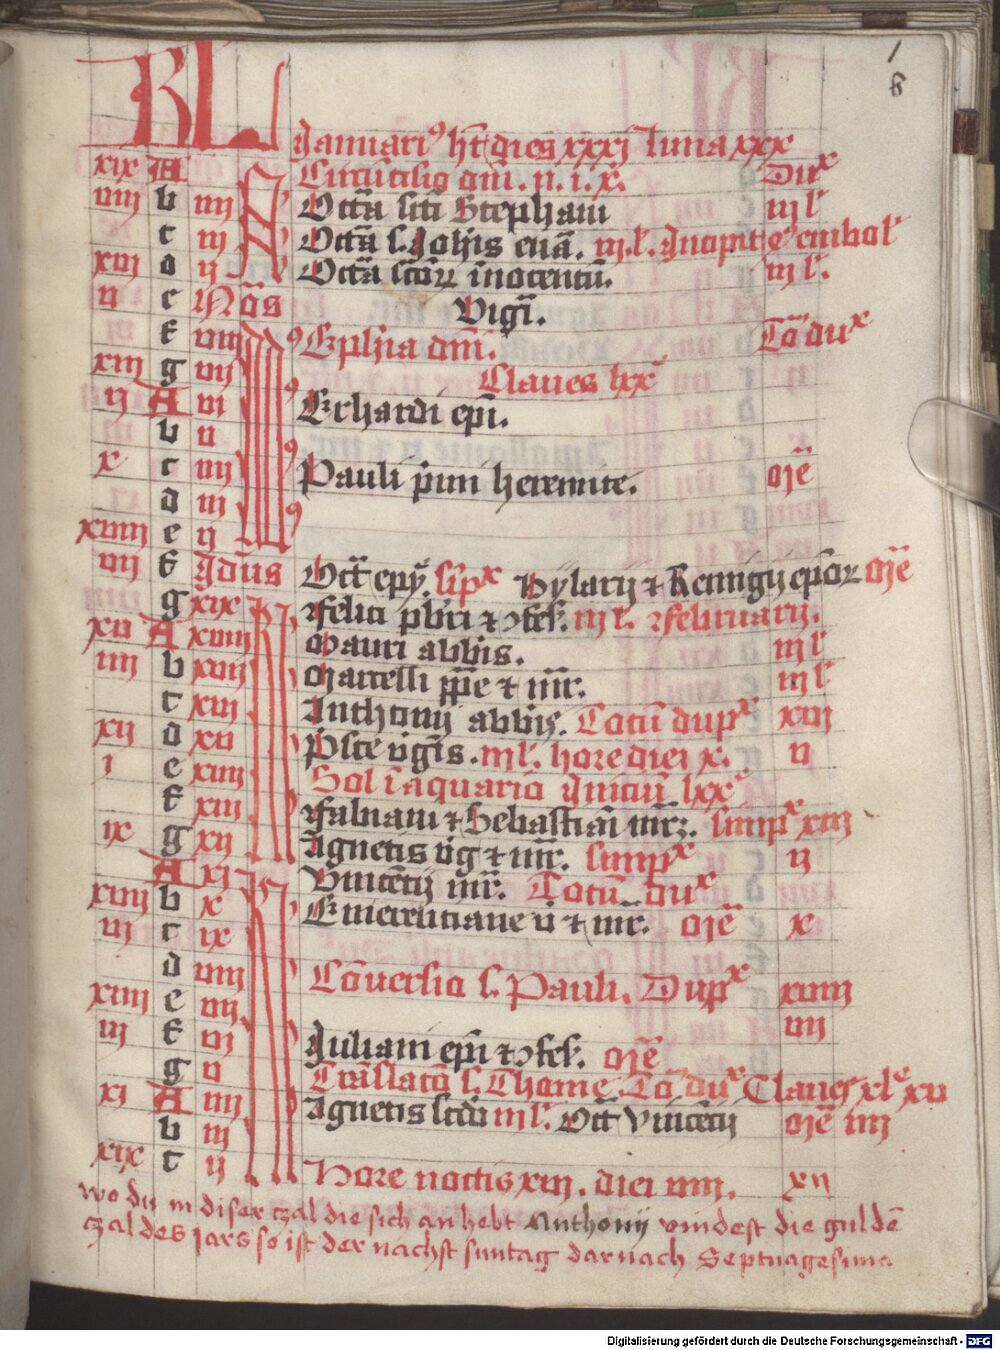 1
8
KL
Januari⁹ ht dies xxxj luna xxx
xix A Circūcisio dni. n. i. x. Dux
viij b iiij Octā scti Stephani iij l
c iij Octā s. Johis euā. iij l. Incipit embol
xvj d ij Octā sctor̄ inocentū. iij l.
v e Nōs Vigī.
f viij Ephia dnī. To dux
xiij g vij Claues lxx
ij A vj Erhardi epī.
b v
x c iiij Pauli pimi heremite. oīe
d iij
xviij e ij
vij f Idus Oct epy. simpx Hylarij & Remigij epōr oīe
g xix Felici pbri & ɔfes. iij l. Februarij.
xv A xviij Mauri abbis. iij l
iiij b xvij Marcelli ppe & mr. iij l
c xvj Anthonij abbis. Totū dupx xvj
xij d xv Pisce vgīs. iij l. hore diei x. v
i e xiiij Sol ī aquario Iniciū lxx
f xiij Fabiani & Sebastiani mr̄. simpx xiij
ix g xij Agnetis v̄g & mr. simpx ij
A xj Vincētij mr. Totū dux
xvij b x Emerenciane v & mr. oīe x
vj c ix
d viij Cōuersio s. Pauli. Dupx xviij
xiiij e vij vij
iij f vj Juliani epī & ɔfes. oīe
g v Trāslatō s. Thome. To dux Claues xl xv
xj A iiij Agnetis scdo iij l. Oct Vincētij oīe iiij
b iij
xix c ij Hore noctis xvj. diei viij. xij
wo du in diser czal die sich anhebt Anthonij vindest die guldē
czal des jars so ist der nachst suntag darnach Septuagesima
Digitalisierung gefördert durch die Deutsche Forschungsgemeinschaft - DFG